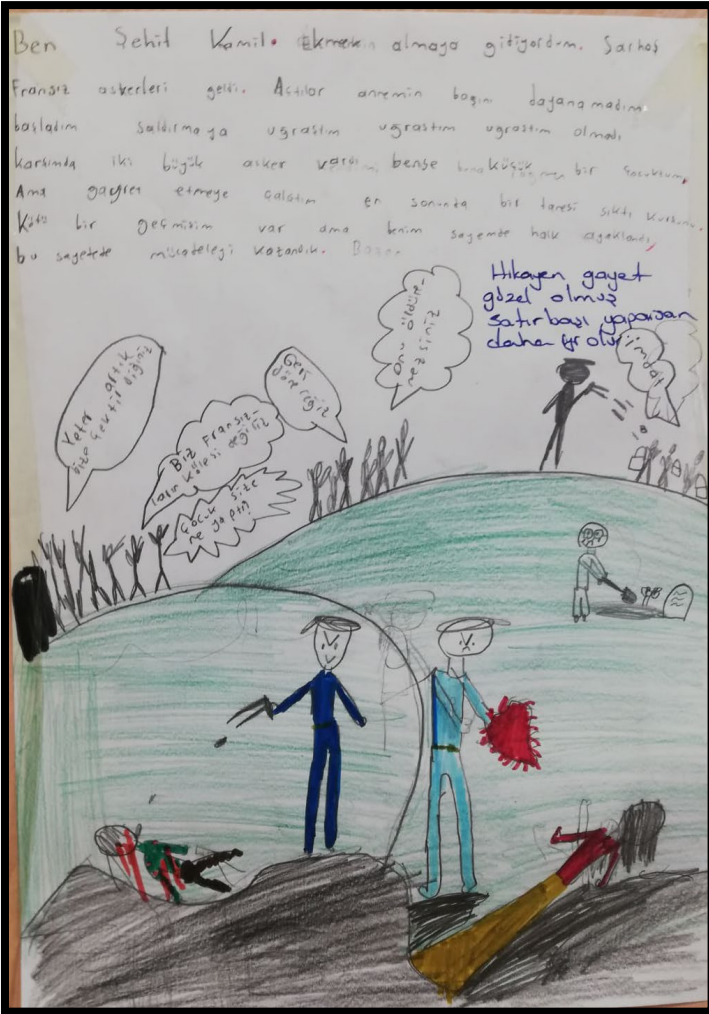 Ben Şehit Kamil. Ekmek almaya gidiyordum. Sarhoş
Fransız askerleri geldi. Açtılar annemin başını dayanamadım
başladım saldırmaya uğraştım uğraştım uğraştım olmadı
karşımda iki büyük asker vardı bense küçük bir çocuktum.
Ama gayret etmeye çalıştım en sonunda bir tanesi sıktı kurşunu.
Kötü bir geçmişim var ama benim sayemde halk ayaklandı,
bu sayede mücadeleyi kazandık.
Hikayen gayet
güzel olmuş
satırbaşı yaparsan
daha iyi olur
Yeter artık
bize çektirdiğiniz
Biz Fransız-
ların kölesi değiliz
Çocuk size
ne yaptı?
Geri
döneceğiz
onu öldüre-
mezsiniz
imdat